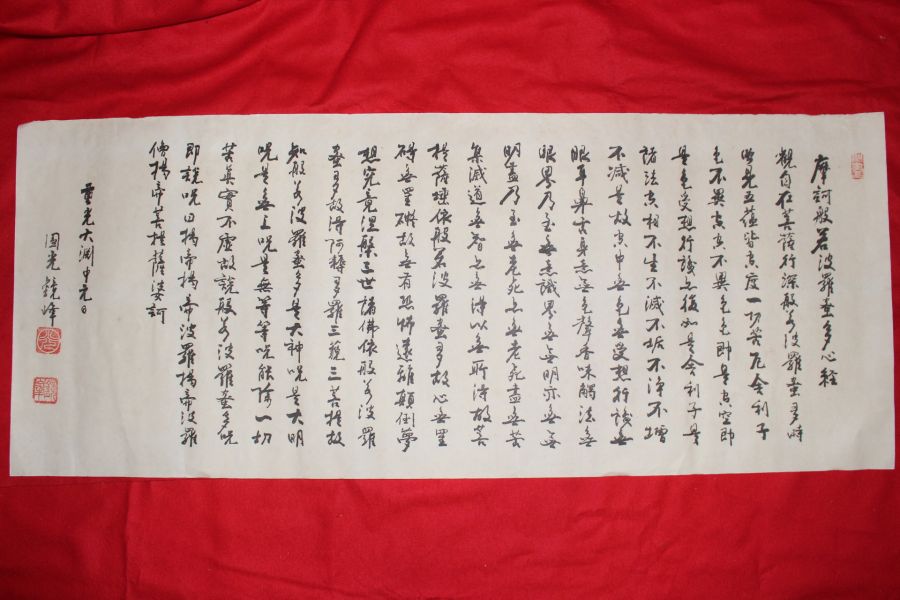 摩訶般若波羅蜜多心経
觀自在菩薩行深般若波羅蜜多時
照見五蘊皆空度一切苦厄舍利子
色不異空空不異色色即是空空即
是色受想行識亦復如是舍利子是
諸法空相不生不滅不垢不淨不增
不減是故空中無色無受想行識無
眼耳鼻舌身意無色聲香味觸法無
眼界乃至無意識界無無明亦無無
明盡乃至無老死亦無老死盡無苦
集滅道無智亦無得以無所得故菩
提薩埵依般若波羅蜜多故心無罣
碍無罣礙故無有恐怖遠離顛倒夢
想究竟涅槃三世諸佛依般若波羅
蜜多故得阿耨多羅三藐三菩提故
知般若波羅蜜多是大神呪是大明
呪是無上呪是無等等呪能除一切
苦真實不虛故說般若波羅蜜多呪
即說呪曰揭帝揭帝波羅揭帝波羅
僧揭帝菩提薩婆訶
重光大淵中元日
国光鏡峰